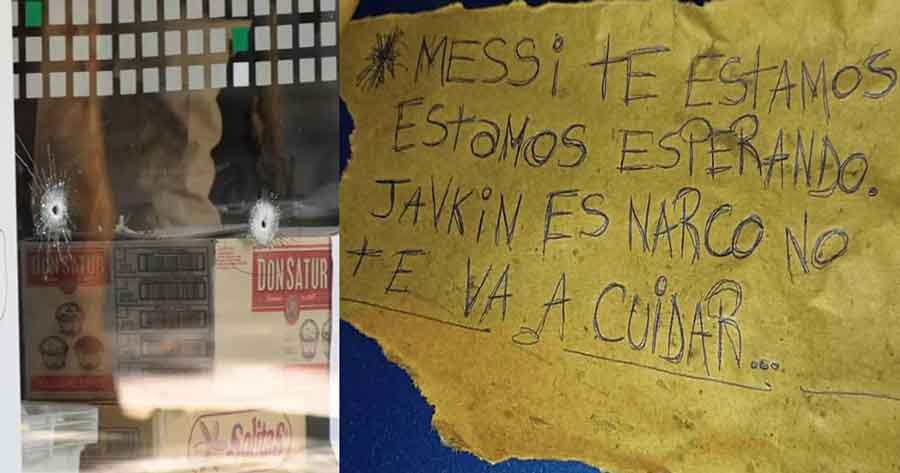 DON SATUR
DON SATUR
Salitas
MESSi tE EStAMOS
EStaMOS ESPERANDO.
JAVKiN ES NARCO NO
tE VA A CUiDAR...